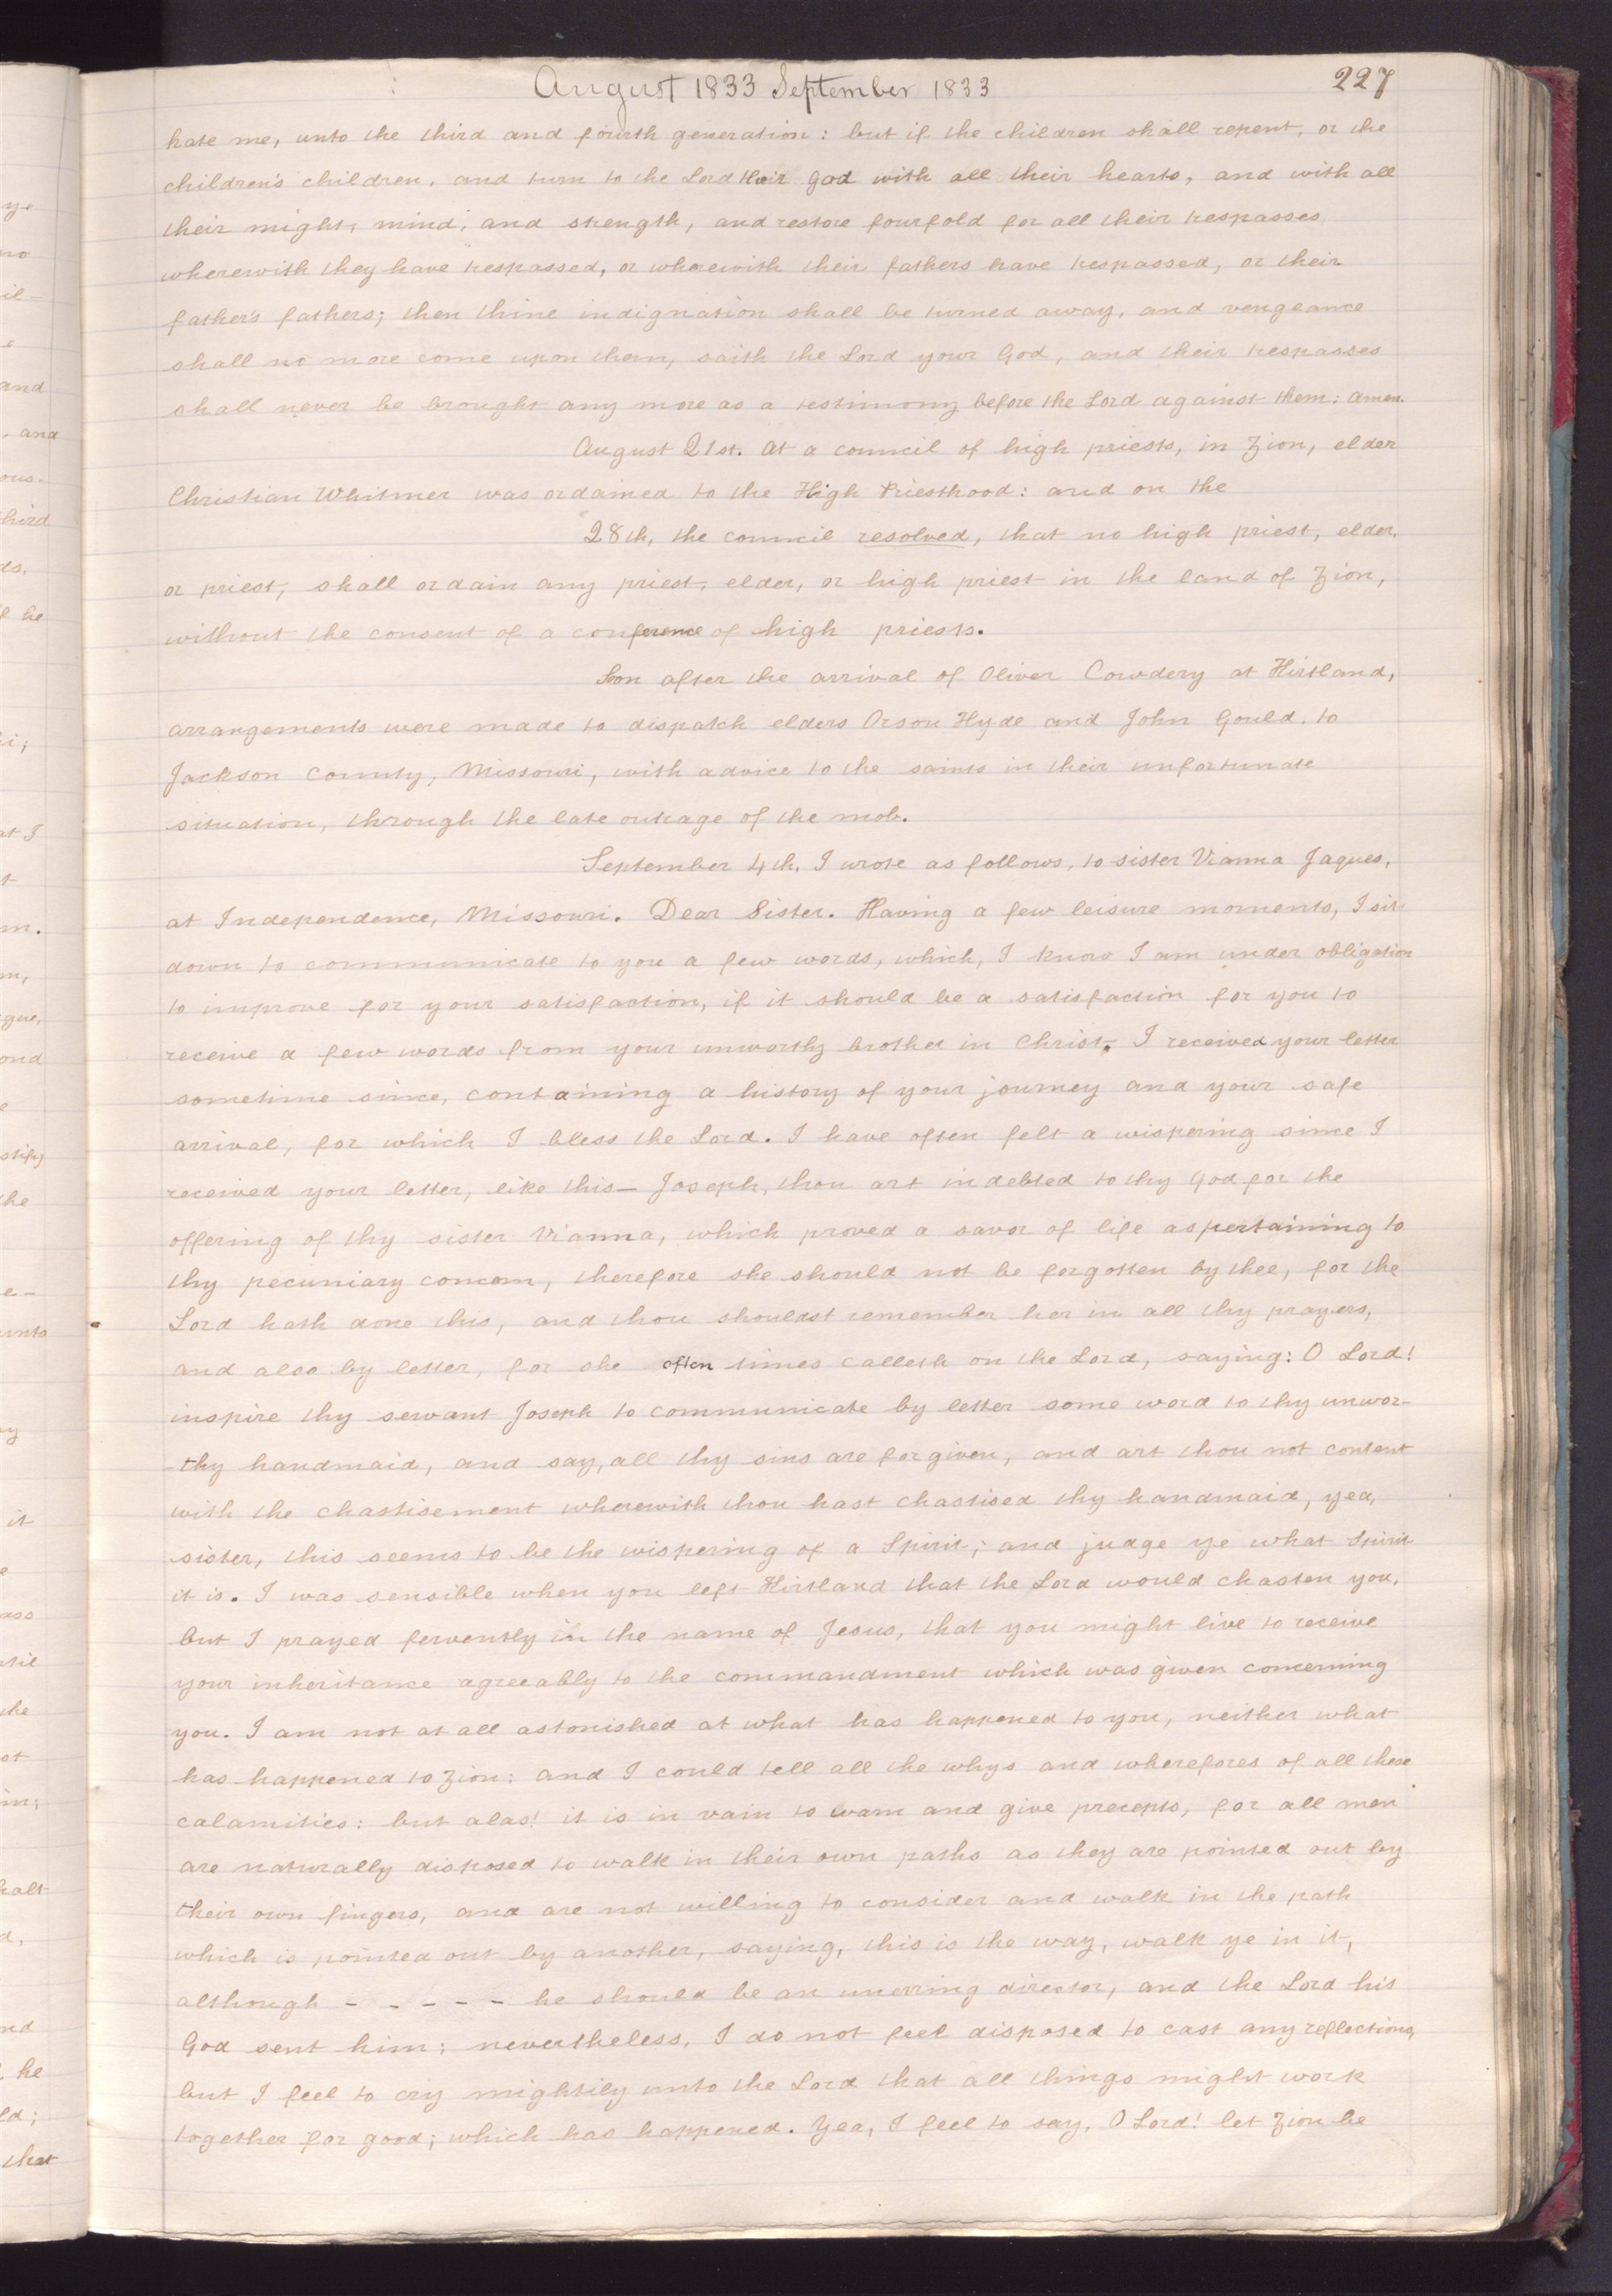 August 1833 September 1833
227
hate me, unto the third and fourth generation: but if the children shall repent, or the
children's children, and turn to the Lord their God with all their hearts, and with all
their might, mind, and strength, and restore fourfold for all their trespasses
wherewith they have trespassed, or wherewith their fathers have trespassed, or their
father's fathers; then thine indignation shall be turned away, and vengeance
shall no more come upon them, saith the Lord your God, and their trespasses
shall never be brought any more as a testimony before the Lord against them: amen.
August 21st. At a council of high priests, in Zion, elder
Christian Whitmer was ordained to the High Priesthood: and on the
28th, the council resolved, that no high priest, elder,
or priest, shall ordain any priest, elder, or high priest in the land of Zion,
without the consent of a conference of high priests.
Soon after the arrival of Oliver Cowdery at Kirtland,
arrangements were made to dispatch elders Orson Hyde and John Gould, to
Jackson County, Missouri, with advice to the saints in their unfortunate
situation, through the late outrage of the mob.
September 4th, I wrote as follows, to sister Vianna Jaques,
at Independence, Missouri. Dear Sister. Having a few leisure moments, I sit
down to communicate to you a few words, which, I know I am under obligation
to improve for your satisfaction, if it should be a satisfaction for you to
receive a few words from your unworthy brother in Christ. I received your letter
sometime since, containing a history of your journey and your safe
arrival, for which I bless the Lord. I have often felt a wispering since I
received your letter, like this— Joseph, thou art indebted to thy God for the
offering of thy sister Vianna, which proved a savor of life as pertaining to
thy pecuniary concern, therefore she should not be forgotten by thee, for the
Lord hath done this, and thou shouldst remember her in all thy prayers,
and also by letter, for she often times calleth on the Lord, saying: O Lord!
inspire thy servant Joseph to communicate by letter some word to thy unwor-
-thy handmaid, and say, all thy sins are forgiven, and art thou not content
with the chastisement wherewith thou hast chastised thy handmaid, yea,
sister, this seems to be the wispering of a Spirit; and judge ye what Spirit
it is. I was sensible when you left Kirtland that the Lord would chasten you,
but I prayed fervently in the name of Jesus, that you might live to receive
your inheritance agreeably to the commandment which was given concerning
you. I am not at all astonished at what has happened to you, neither what
has happened to Zion: and I could tell all the whys and wherefores of all these
calamities: but alas! it is in vain to warn and give precepts, for all men
are naturally disposed to walk in their own paths as they are pointed out by
their own fingers, and are not willing to consider and walk in the path
which is pointed out by another, saying, this is the way, walk ye in it,
although - - - - - he should be an unerring director, and the Lord his
God sent him; nevertheless, I do not feel disposed to cast any reflections,
but I feel to cry mightily unto the Lord that all things might work
together for good; which has happened. Yea, I feel to say, O Lord! let Zion be